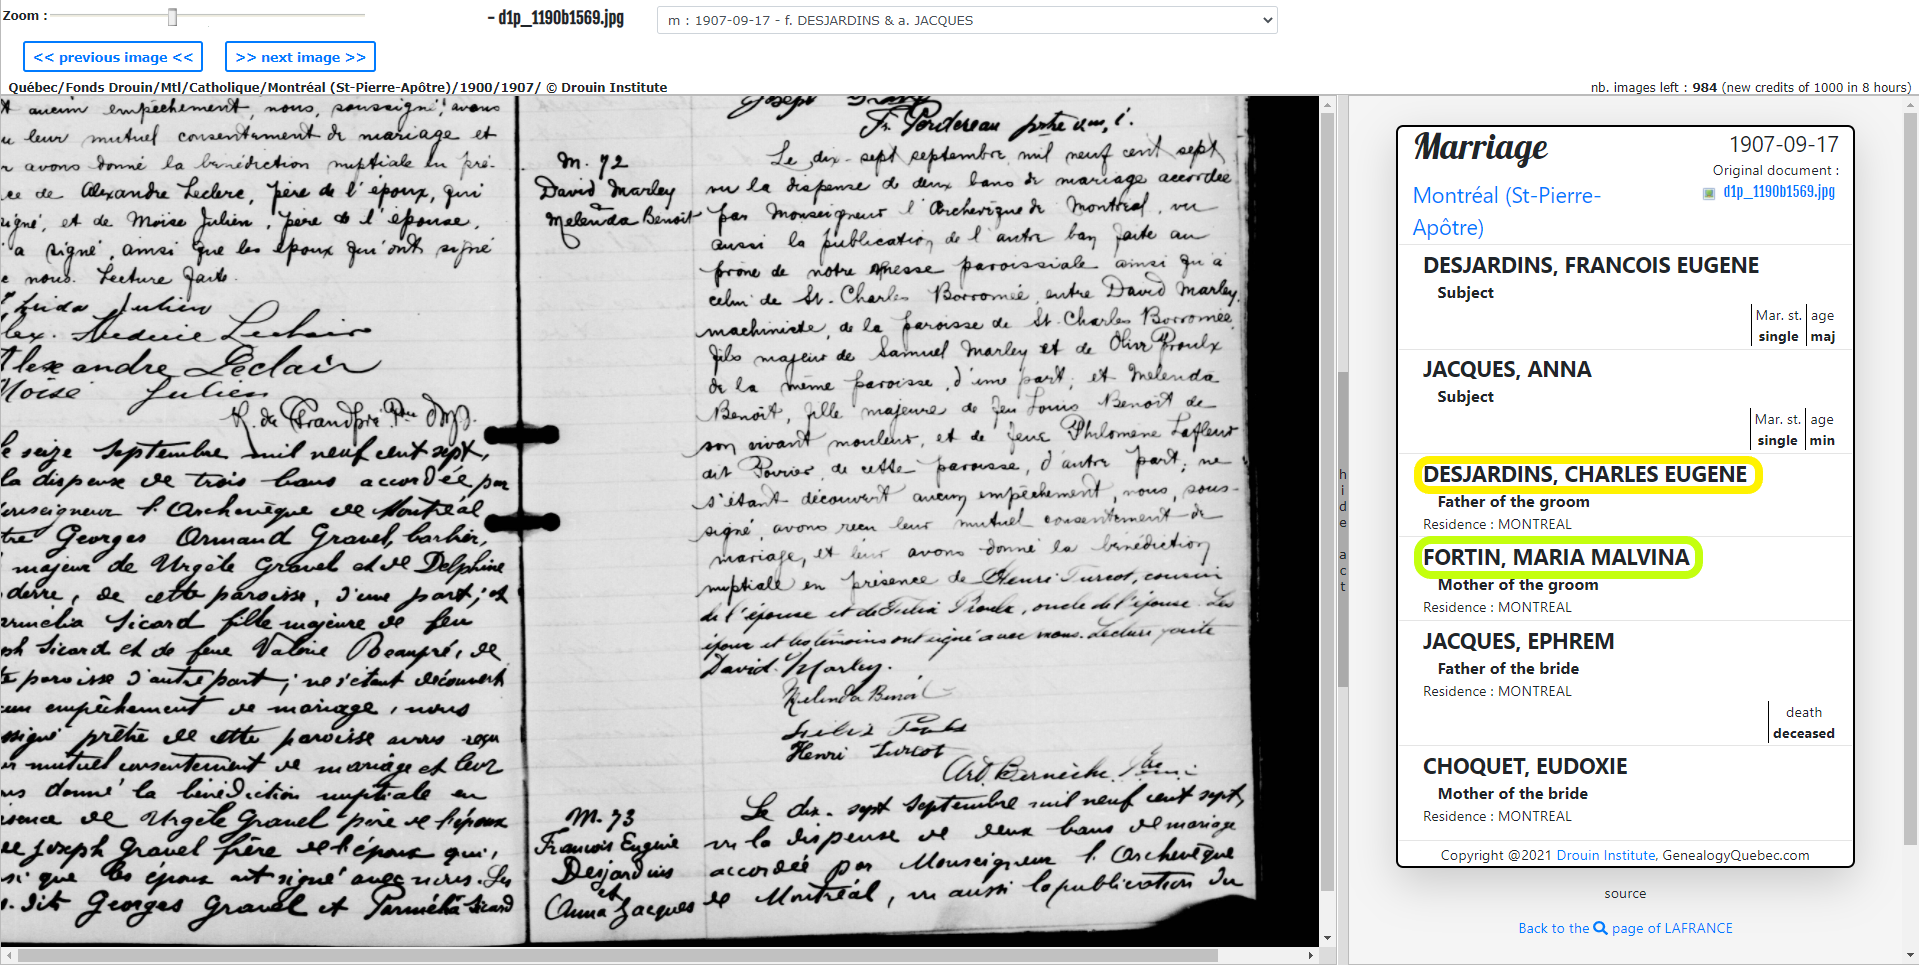 Zoom :
- d1p_1190b1569.jpg
m : 1907-09-17 - f. DESJARDINS & a. JACQUES
<< previous image <<
>> next image >>
Québec/Fonds Drouin/Mtl/Catholique/Montréal (St-Pierre-Apôtre)/1900/1907/ © Drouin Institute
nb. images left : 984 (new credits of 1000 in 8 hours)
t aucun empêchement, nous, soussigné, avons
u leur mutuel consentement de mariage et
n avons donné la bénédiction nuptiale en pré-
ce de Alexandre Leclerc, père de l'époux, qui
signé, et de Moise Julien, père de l'épouse,
a signé, ainsi que les époux qui ont signé
c nous. Lecture faite.
Julien
lex. Leclair
Alexandre Leclair
Moise Julien
le seize septembre mil neuf cent sept,
la dispense de trois bans accordée par
onseigneur l'Archevêque de Montréal
tre Georges Armand Gravel, barbier,
majeur de Urgèle Gravel et de Delphine
derre, de cette paroisse, d'une part; et
armélia Sicard fille majeure de feu
ph Sicard et de feue Valérie Beaupré, de
te paroisse d'autre part; ne s'étant découvert
cun empêchement de mariage, nous
ssigné prêtre de cette paroisse avons reçu
ur mutuel consentement de mariage et leur
ns donné la bénédiction nuptiale en
sence de Urgèle Gravel père de l'époux
de Joseph Gravel frère de l'époux qui,
si que les époux ont signé avec nous. Les
dits Georges Gravel et Parmélia Sicard
Joseph
M. 72
David Marley
Melenda Benoit
Le dix-sept septembre mil neuf cent sept
vu la dispense de deux bans de mariage accordée
par Monseigneur l'Archevêque de Montréal, vu
aussi la publication de l'autre ban faite au
prône de notre messe paroissiale ainsi qu'à
celui de St. Charles Borromée, entre David Marley,
machiniste, de la paroisse de St. Charles Borromée,
fils majeur de Samuel Marley et de Olive Proulx
de la même paroisse, d'une part; et Melenda
Benoît, fille majeure de feu Louis Benoît de
son vivant mouleur, et de feue Philomène Lafleur
dit Poirier, de cette paroisse, d'autre part; ne
s'étant découvert aucun empêchement, nous, sous-
signé, avons reçu leur mutuel consentement de
mariage, et leur avons donné la bénédiction
nuptiale en présence de Henri Turcot, cousin
de l'épouse et de Julia Proulx, oncle de l'épouse. Les
époux et les témoins ont signé avec nous. Lecture faite
David Marley.
Melenda Benoit
Henri Turcot
M. 73
Francois Eugène
Desjardins
et
Anna Jacques
Le dix-sept septembre mil neuf cent sept,
vu la dispense de deux bans de mariage
accordée par Monseigneur l'Archevêque
de Montréal, vu aussi la publication du
hide act
Marriage
1907-09-17
Original document :
d1p_1190b1569.jpg
Montréal (St-Pierre-
Apôtre)
DESJARDINS, FRANCOIS EUGENE
Subject
Mar. st. age
single maj
JACQUES, ANNA
Subject
Mar. st. age
single min
DESJARDINS, CHARLES EUGENE
Father of the groom
Residence : MONTREAL
FORTIN, MARIA MALVINA
Mother of the groom
Residence : MONTREAL
JACQUES, EPHREM
Father of the bride
Residence : MONTREAL
death
deceased
CHOQUET, EUDOXIE
Mother of the bride
Residence : MONTREAL
Copyright @2021 Drouin Institute, GenealogyQuebec.com
source
Back to the page of LAFRANCE